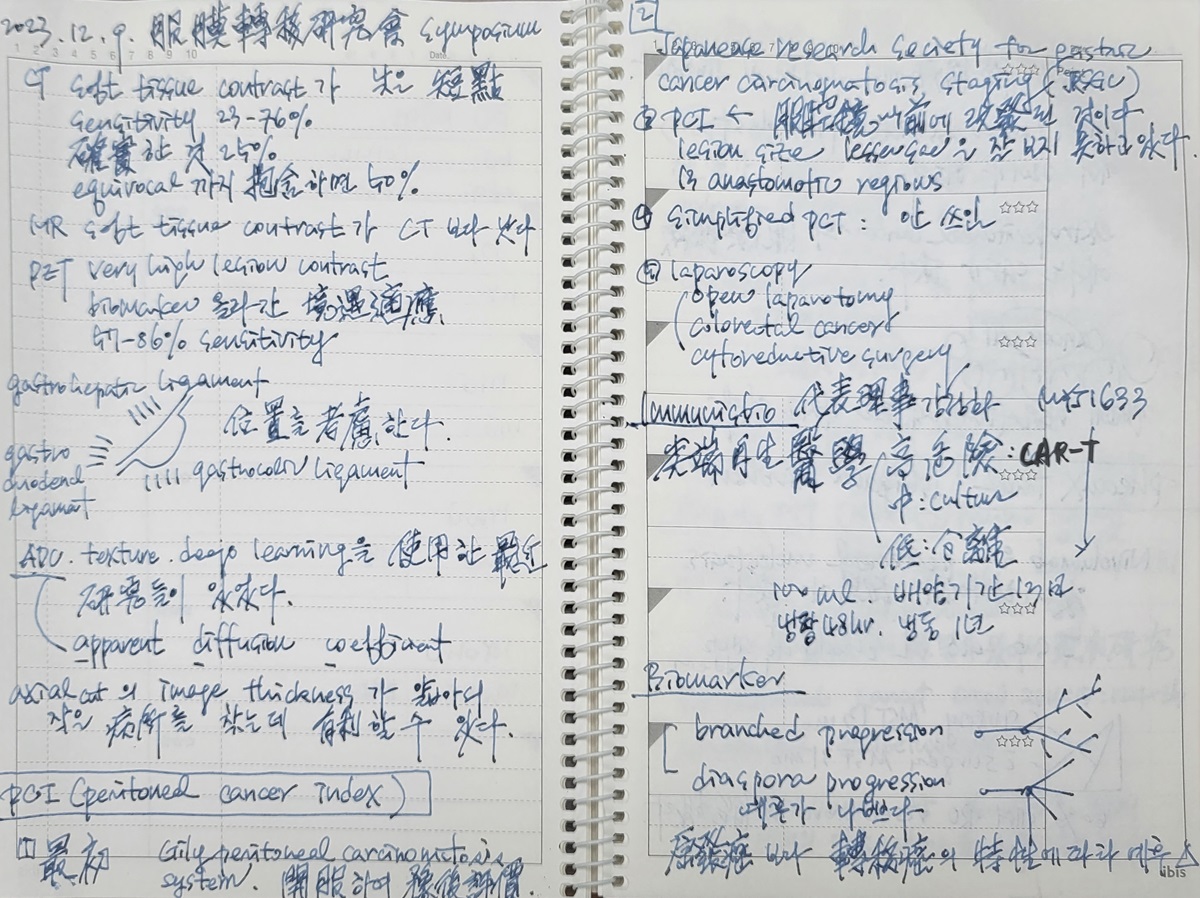 2023. 12. 9. 腹膜轉移研究會 symposium
CT soft tissue contrast가 낮은 短點
sensitivity 23-76%
確實한 것 25%
equivocal까지 抱含하면 50%
MR soft tissue contrast가 CT 보다 낫다
PET very high lesion contrast
biomarker 올라간 境遇 適應
57-86% sensitivity
gastrohepatic ligament
位置를 考慮한다.
gastro
duodenal
ligament
gastrocolic ligament
ADC. texture. deep learning을 使用한 最近
研究들이 있었다.
apparent diffusion coefficient
axial cut의 image thickness가 얇아야
작은 病所를 찾는데 有利할 수 있다.
PCI (peritoneal cancer index)
1 最初 Gily peritoneal carcinomatosis
system. 開腹하여 豫後評價.
2 Japanese research society for gastric
cancer carcinomatosis staging (JRSGC)
③ PCI ← 腹腔鏡 以前에 改發된 것이다
lesion size lesser sac을 잘 보지 못하고 있다.
13 anastomotic regions
④ simplified PCI : 안 쓰임
⑤ laparoscopy
open laparotomy
colorectal cancer
cytoreductive surgery
Immunisbio 代表理事 강상화 MYJ1633
尖端再生醫學 高危險 : CAR-T
中 : culture
低 : 分離
100 ml. 배양기간 13日
냉장 48hr. 냉동 1년
Biomarker
branched progression
diaspora progression
예후가 나쁘다
原發癌 보다 轉移癌의 特性에 따라 예후 △
ibis